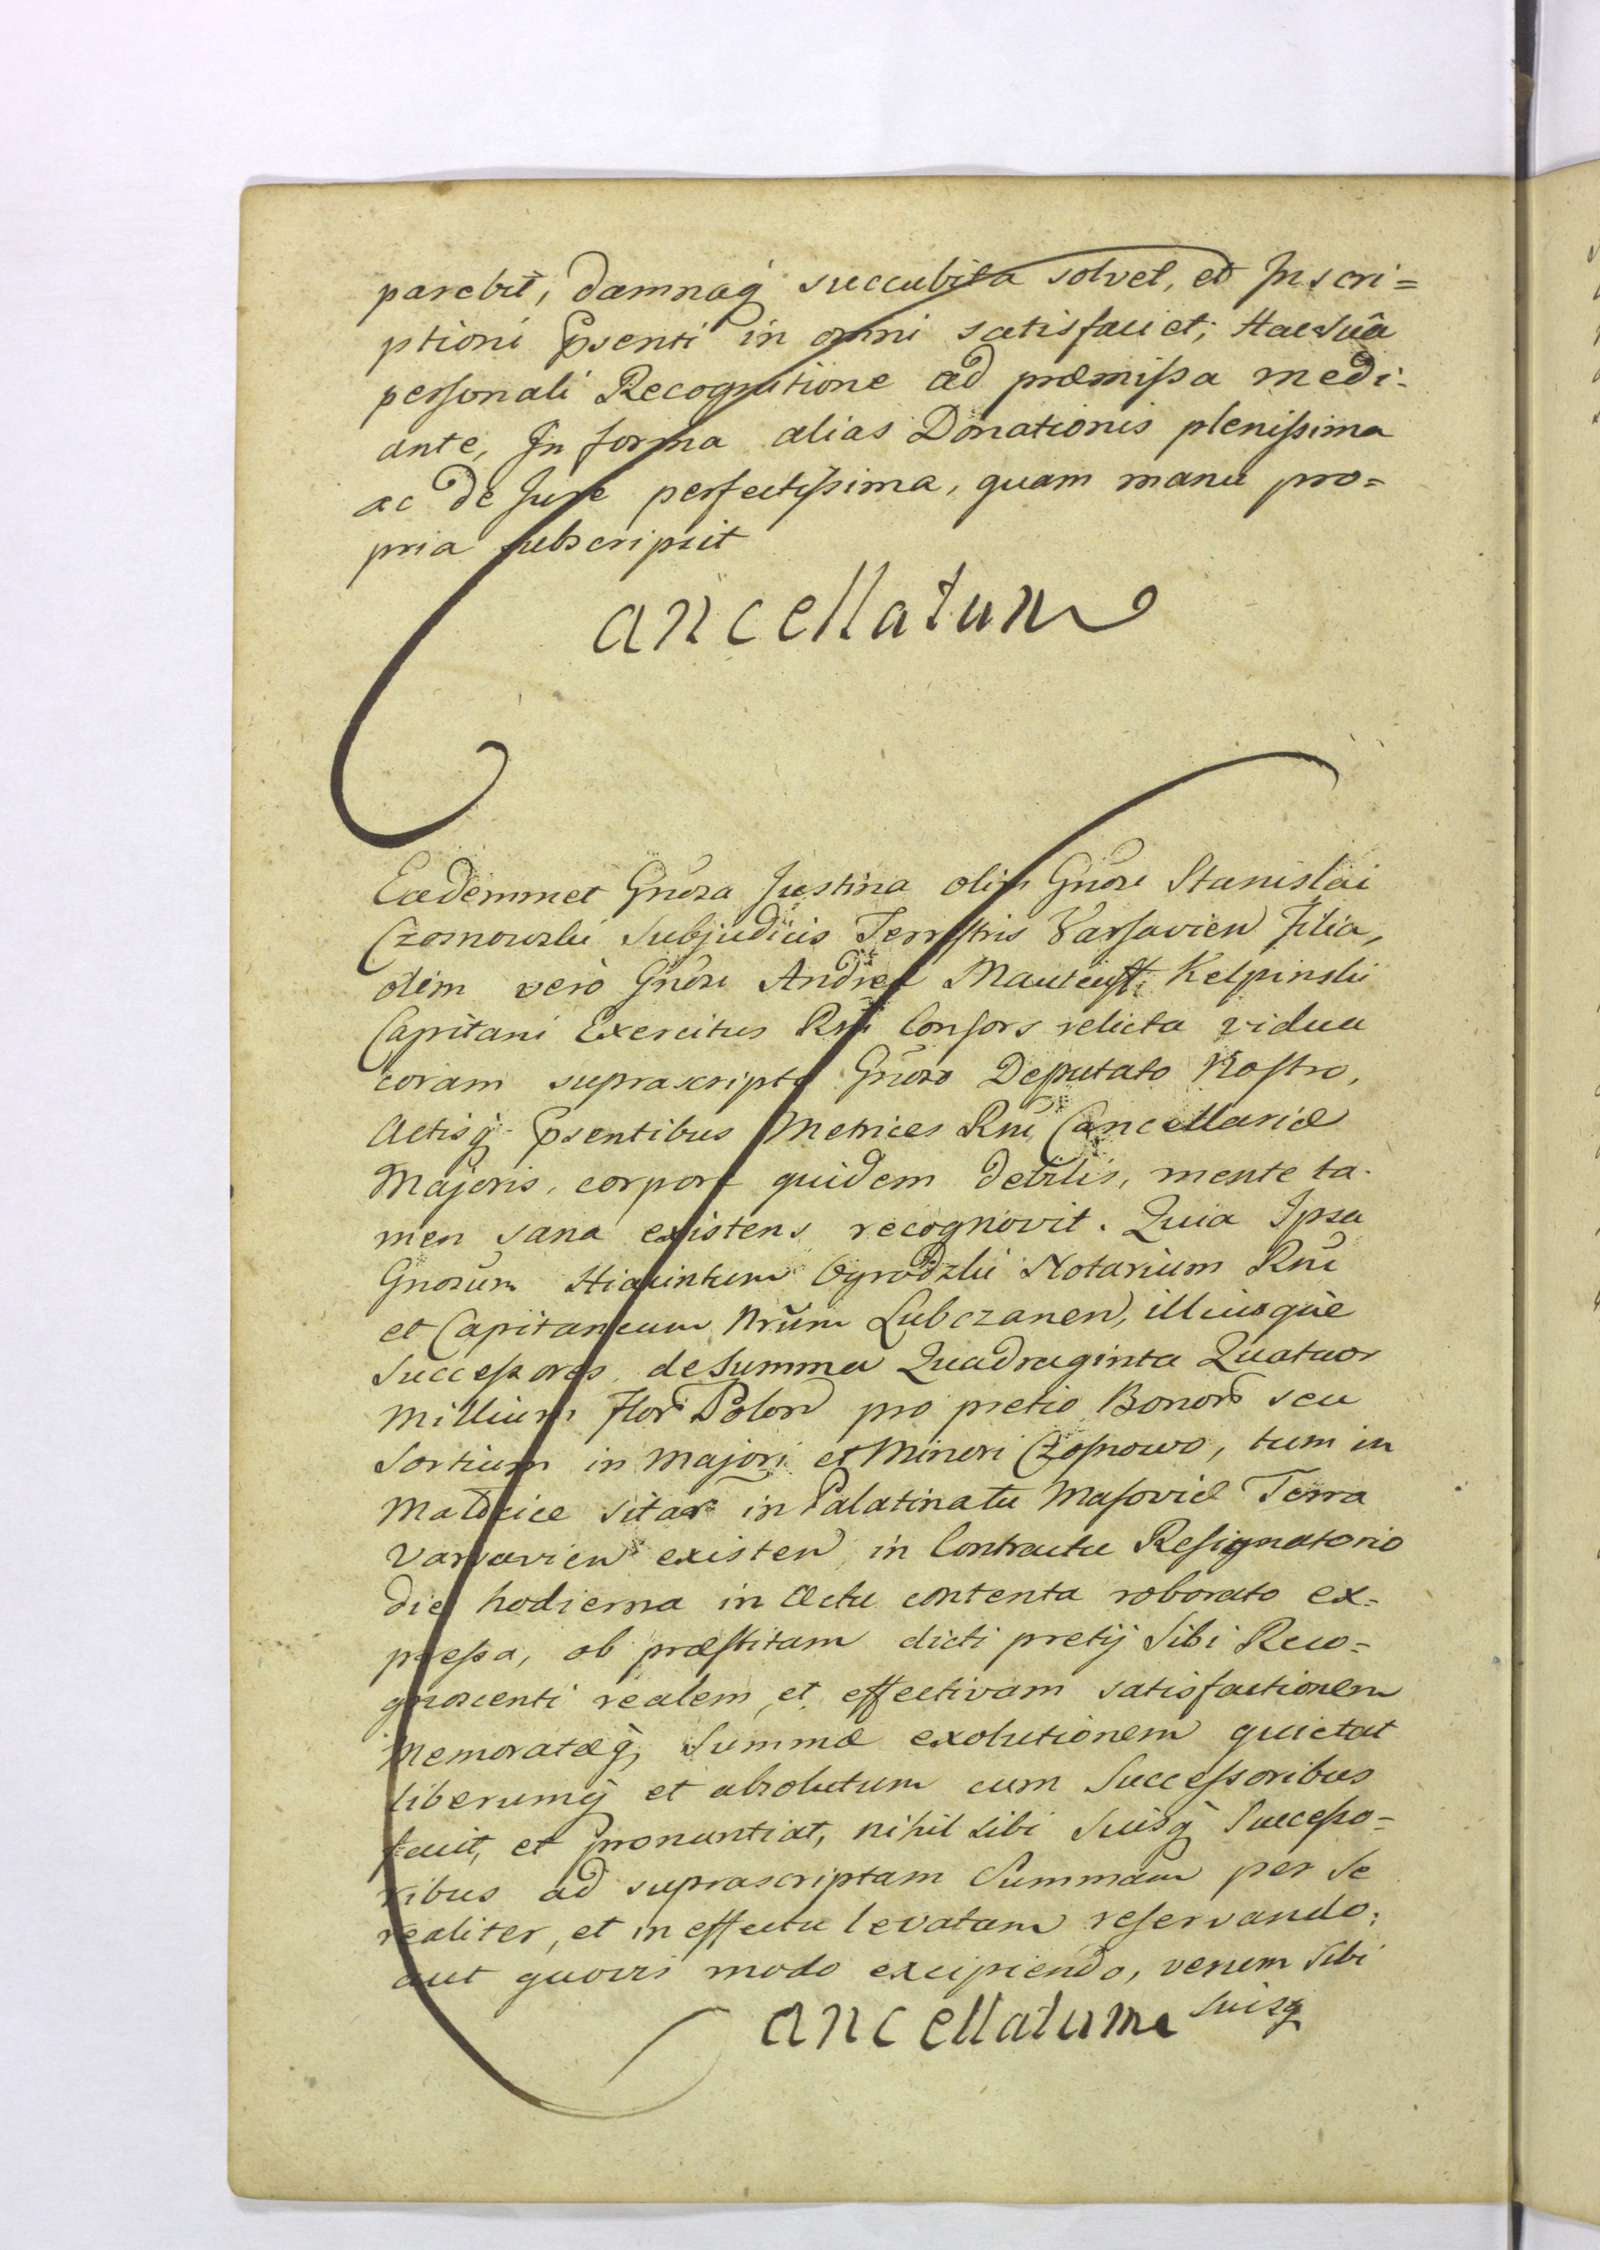 parebit, damnaq́ succubita solvet, et Inscri=
ptioni Pṣenti in omni satisfaciet; Hac Suâ
personali Recognitione ad præmissa medi-
ante, In forma alias Donationis plenissima
ac de Jure perfectissima, quam manu pro=
pria subscripsit
Cancellatum
Eadem̄met Gnosa Justina olim Gnosi Stanislai
Czosnowski Subjudicis Terrestris Varsavien Filia,
olim verò Gnosi Andreæ Kelpinski
Capitani Exercitus Rni Consors relicta vidua
coram suprascripto Gnoso Deputato Nostro,
Actisq́ Pṣentibus Metrices Rni Cancellariæ
Majoris, corpore quidem debilis, mente ta-
men sana existens recognovit. Quia Ipsa
Gnosum Hiacintum Ogrodzki Notarium Rni
et Capitaneum Nrum Lubczanen, illiusque
Successores de Summa Quadraginta Quatuor
Millium Flor Polon pro pretio Bonor seu
Sortium in Majori et Minori Czosnowo, tum in
sitar in Palatinatu Masoviæ Terra
Varsavien existen in Contractu Resignatorio
die hodierna in Actu contenta roborato ex-
pressa, ob præstitam dicti pretij Sibi Reco=
gnoscenti realem et effectivam satisfactionem
Memoratæq́ Summæ exolutionem quietat
liberumq́ et absolutum cum Successoribus
facit, et pronuntiat, nihil sibi Suisq́ Successo=
ribus ad suprascriptam Summam per Se
realiter, et in effectu levatam reservando,
aut quovis modo excipiendo, verum Sibi
Suisq́
Cancellatum